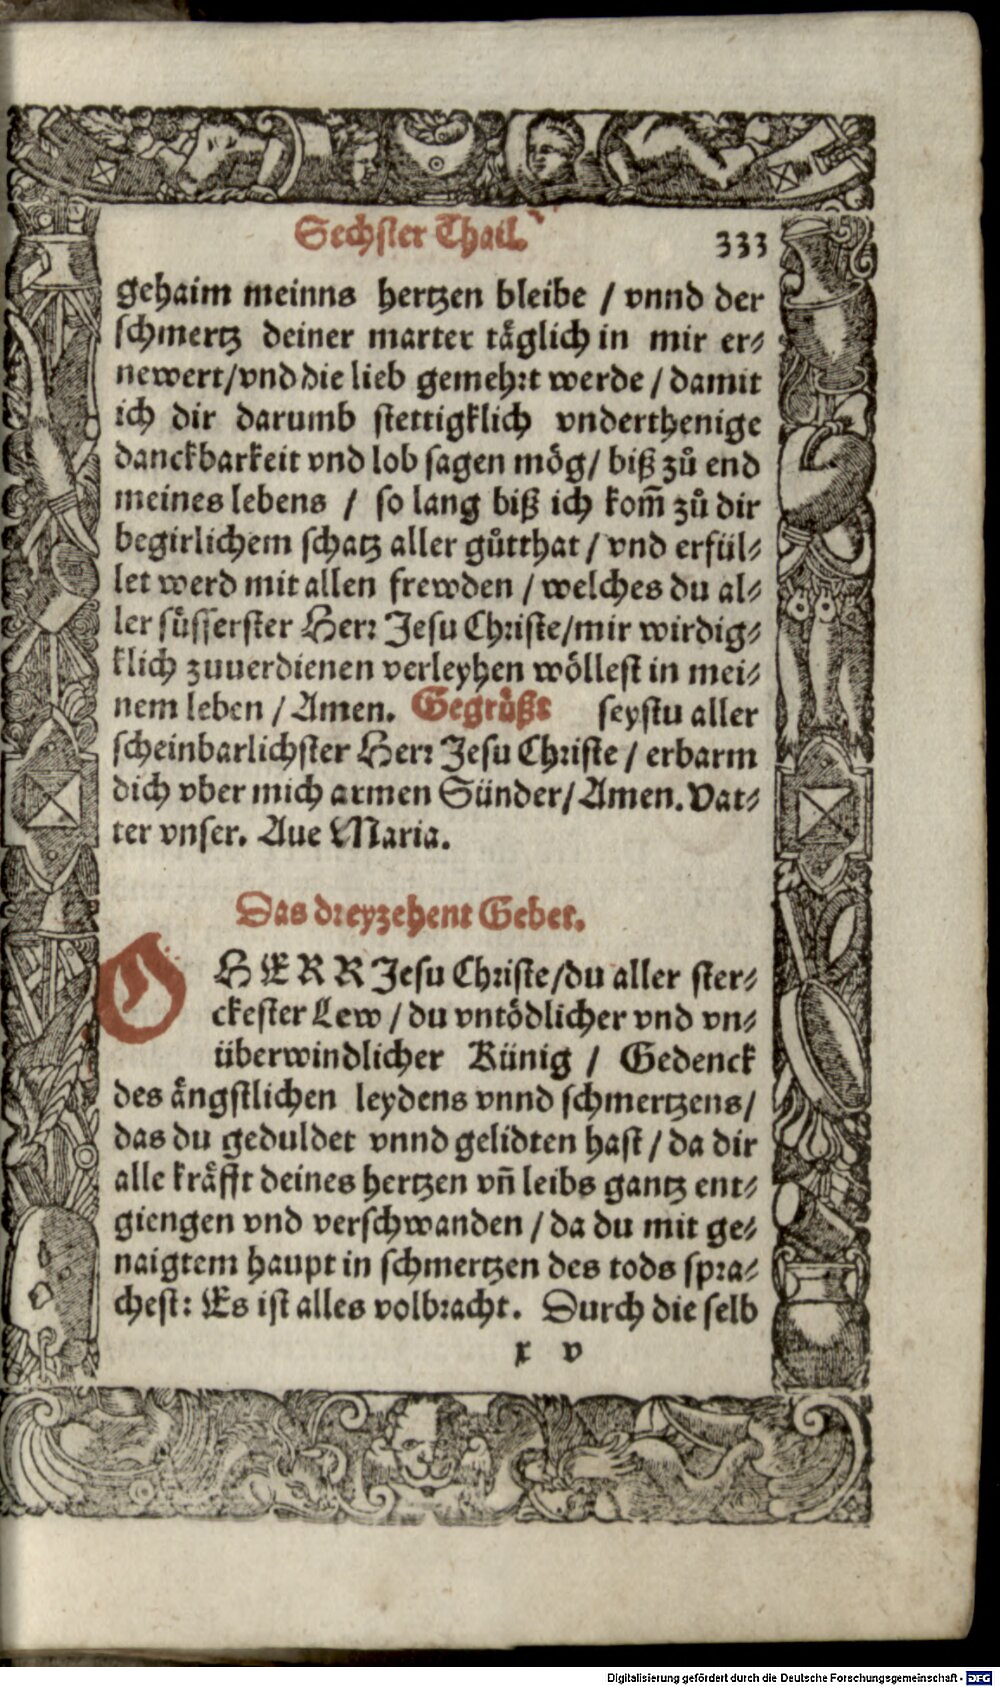 Sechster Thail. 333
gehaim meinns hertzen bleibe / vnnd der
schmertz deiner marter täglich in mir er⸗
newert/vnd die lieb gemehrt werde / damit
ich dir darumb stettigklich vnderthenige
danckbarkeit vnd lob sagen mög/ biß zů end
meines lebens / so lang biß ich kom̃ zů dir
begirlichem schatz aller gůtthat / vnd erfül⸗
let werd mit allen frewden / welches du al⸗
ler süsserster Herr Jesu Christe/mir wirdig⸗
klich zuuerdienen verleyhen wöllest in mei⸗
nem leben / Amen. Gegrüßt seystu aller
scheinbarlichster Herr Jesu Christe / erbarm
dich vber mich armen Sünder/ Amen. Vat⸗
ter vnser. Aue Maria.
Das dreyzehent Gebet.
O HERR Jesu Christe/du aller ster⸗
ckester Lew / du vntödlicher vnd vn⸗
überwindlicher Künig / Gedenck
des ängstlichen leydens vnnd schmertzens/
das du geduldet vnnd gelidten hast / da dir
alle kräfft deines hertzen vñ leibs gantz ent⸗
giengen vnd verschwanden / da du mit ge⸗
naigtem haupt in schmertzen des tods spra⸗
chest: Es ist alles volbracht. Durch die selb
x v
Digitalisierung gefördert durch die Deutsche Forschungsgemeinschaft - DFG